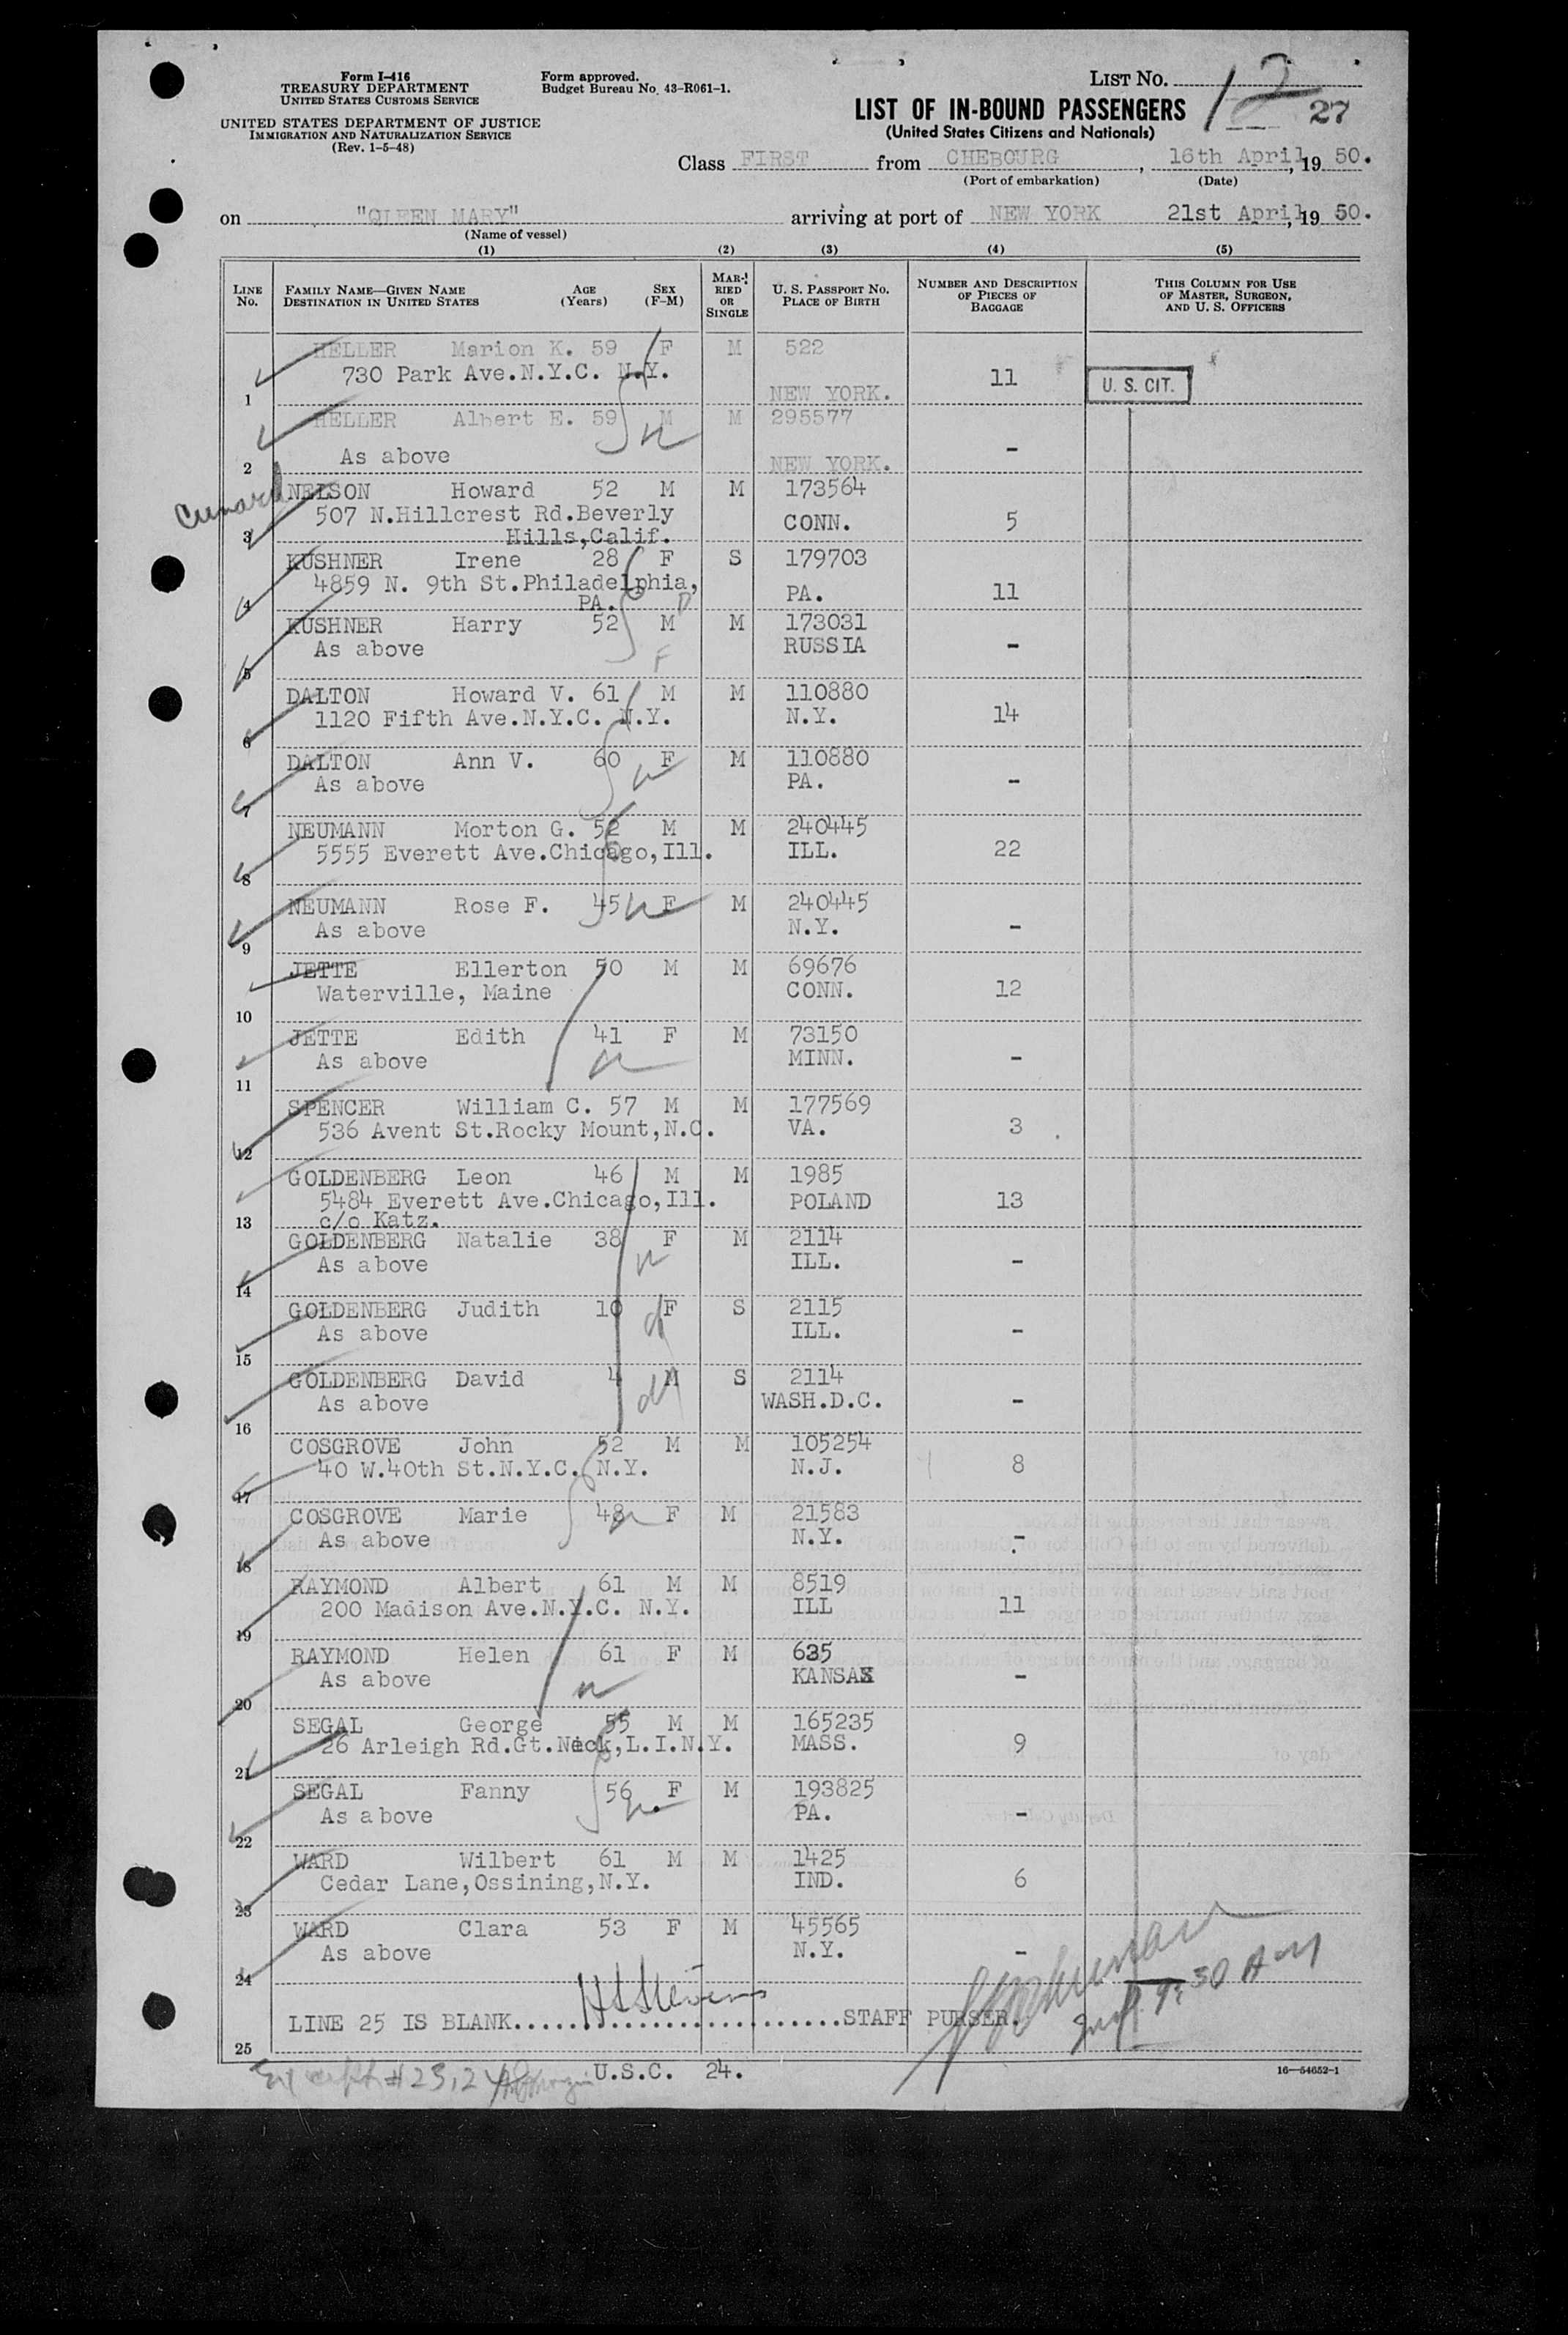 Form I-416
TREASURY DEPARTMENT
UNITED STATES CUSTOMS SERVICE
UNITED STATES DEPARTMENT OF JUSTICE
IMMIGRATION AND NATURALIZATION SERVICE
(Rev. 1-5-48)
Form approved.
Budget Bureau No. 43-R061-1.
LIST No. 12
27
LIST OF IN-BOUND PASSENGERS
(United States Citizens and Nationals)
Class FIRST from CHEBOURG, 16th April, 19 50.
(Port of embarkation) (Date)
on "QUEEN MARY" arriving at port of NEW YORK 21st April, 19 50.
(Name of vessel)
(1) (2) (3) (4) (5)
LINE No. FAMILY NAME—GIVEN NAME DESTINATION IN UNITED STATES AGE (Years) SEX (F-M) MARRIED OR SINGLE U. S. PASSPORT No. PLACE OF BIRTH NUMBER AND DESCRIPTION OF PIECES OF BAGGAGE THIS COLUMN FOR USE OF MASTER, SURGEON, AND U. S. OFFICERS
HELLER Marion K. 59 F M 522
730 Park Ave.N.Y.C. N.Y. 11 U. S. CIT.
1 NEW YORK.
HELLER Albert E. 59 M M 295577
As above -
2 NEW YORK.
Cunard
NELSON Howard 52 M M 173564
507 N.Hillcrest Rd.Beverly CONN. 5
3 Hills,Calif.
KUSHNER Irene 28 F S 179703
4859 N. 9th St.Philadelphia, PA. 11
4 PA.
KUSHNER Harry 52 M M 173031
As above RUSSIA -
5
DALTON Howard V. 61 M M 110880
1120 Fifth Ave.N.Y.C. N.Y. N.Y. 14
6
DALTON Ann V. 60 F M 110880
As above PA. -
7
NEUMANN Morton G. 52 M M 240445
5555 Everett Ave.Chicago,Ill. ILL. 22
8
NEUMANN Rose F. 45 F M 240445
As above N.Y. -
9
JETTE Ellerton 50 M M 69676
Waterville, Maine CONN. 12
10
JETTE Edith 41 F M 73150
As above MINN. -
11
SPENCER William C. 57 M M 177569
536 Avent St.Rocky Mount,N.C. VA. 3
12
GOLDENBERG Leon 46 M M 1985
5484 Everett Ave.Chicago,Ill. POLAND 13
13 c/o Katz.
GOLDENBERG Natalie 38 F M 2114
As above ILL. -
14
GOLDENBERG Judith 10 F S 2115
As above ILL. -
15
GOLDENBERG David 4 M S 2114
As above WASH.D.C. -
16
COSGROVE John 52 M M 105254
40 W.40th St.N.Y.C. N.Y. N.J. 8
17
COSGROVE Marie 48 F M 21583
As above N.Y. -
18
RAYMOND Albert 61 M M 8519
200 Madison Ave.N.Y.C. N.Y. ILL 11
19
RAYMOND Helen 61 F M 635
As above KANSAS -
20
SEGAL George 55 M M 165235
26 Arleigh Rd.Gt.Neck,L.I.N.Y. MASS. 9
21
SEGAL Fanny 56 F M 193825
As above PA. -
22
WARD Wilbert 61 M M 1425
Cedar Lane,Ossining,N.Y. IND. 6
23
WARD Clara 53 F M 45565
As above N.Y. -
24
LINE 25 IS BLANK..............................STAFF PURSER.
25
9:30 AM
Except #23,24
U.S.C. 24.
16—54652-1